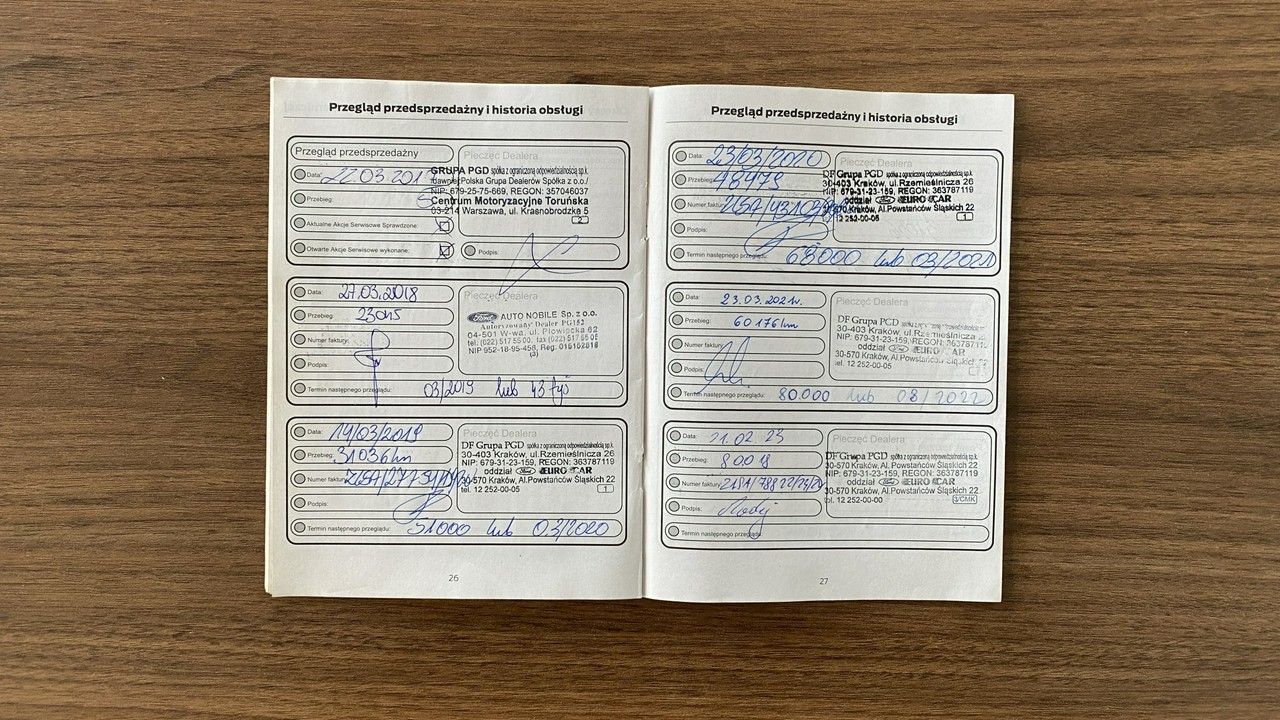 Przegląd przedsprzedażny i historia obsługi
Przegląd przedsprzedażny
Data:
Przebieg:
Aktualne Akcje Serwisowe Sprawdzone:
Otwarte Akcje Serwisowe wykonane:
Pieczęć Dealera
GRUPA PGD spółka z ograniczoną odpowiedzialnością sp.k.
dawniej Polska Grupa Dealerów Spółka z o.o./
NIP: 679-25-75-669, REGON: 357046037
Centrum Motoryzacyjne Toruńska
03-214 Warszawa, ul. Krasnobrodzka 5
2
Podpis:
Data: 27.03.2018
Przebieg: 23015
Numer faktury:
Podpis:
Termin następnego przeglądu: 03/2019 lub 43 tyś
Pieczęć Dealera
Ford AUTO NOBILE Sp. z o.o.
Autoryzowany Dealer PG152
04-501 W-wa, ul. Płowiecka 62
NIP 952-18-95-458, Reg.
Data: 14/03/2019
Przebieg: 31036km
Numer faktury:
Podpis:
Termin następnego przeglądu: 51000 lub 03/2020
Pieczęć Dealera
DF Grupa PGD spółka z ograniczoną odpowiedzialnością sp.k.
30-403 Kraków, ul.Rzemieślnicza 26
NIP: 679-31-23-159, REGON: 363787119
oddział Ford EURO CAR
30-570 Kraków, Al.Powstańców Śląskich 22
tel. 12 252-00-05
1
26
Przegląd przedsprzedażny i historia obsługi
Data: 23/03/2020
Przebieg: 48479
Numer faktury:
Podpis:
Termin następnego przeglądu: 68000 lub 03/2021
Pieczęć Dealera
DF Grupa PGD spółka z ograniczoną odpowiedzialnością sp.k.
30-403 Kraków, ul.Rzemieślnicza 26
NIP: 679-31-23-159, REGON: 363787119
oddział Ford EURO CAR
30-570 Kraków, Al.Powstańców Śląskich 22
12 252-00-05
1
Data: 23.03.2021r.
Przebieg: 60176km
Numer faktury:
Podpis:
Termin następnego przeglądu: 80.000 lub 08/2022
Pieczęć Dealera
DF Grupa PGD
30-403 Kraków, ul.Rzemieślnicza 26
NIP: 679-31-23-159, REGON: 363787119
oddział Ford EURO CAR
30-570 Kraków, Al.Powstańców Śląskich 22
tel. 12 252-00-05
Data: 21.02 23
Przebieg: 80018
Numer faktury:
Podpis:
Termin następnego przeglądu:
Pieczęć Dealera
DF Grupa PGD spółka z ograniczoną odpowiedzialnością sp.k.
30-570 Kraków, Al. Powstańców Śląskich 22
NIP: 679-31-23-159, REGON: 363787119
oddział Ford EURO CAR
30-570 Kraków, Al.Powstańców Śląskich 22
tel. 12 252-00-00
3/CMK
27